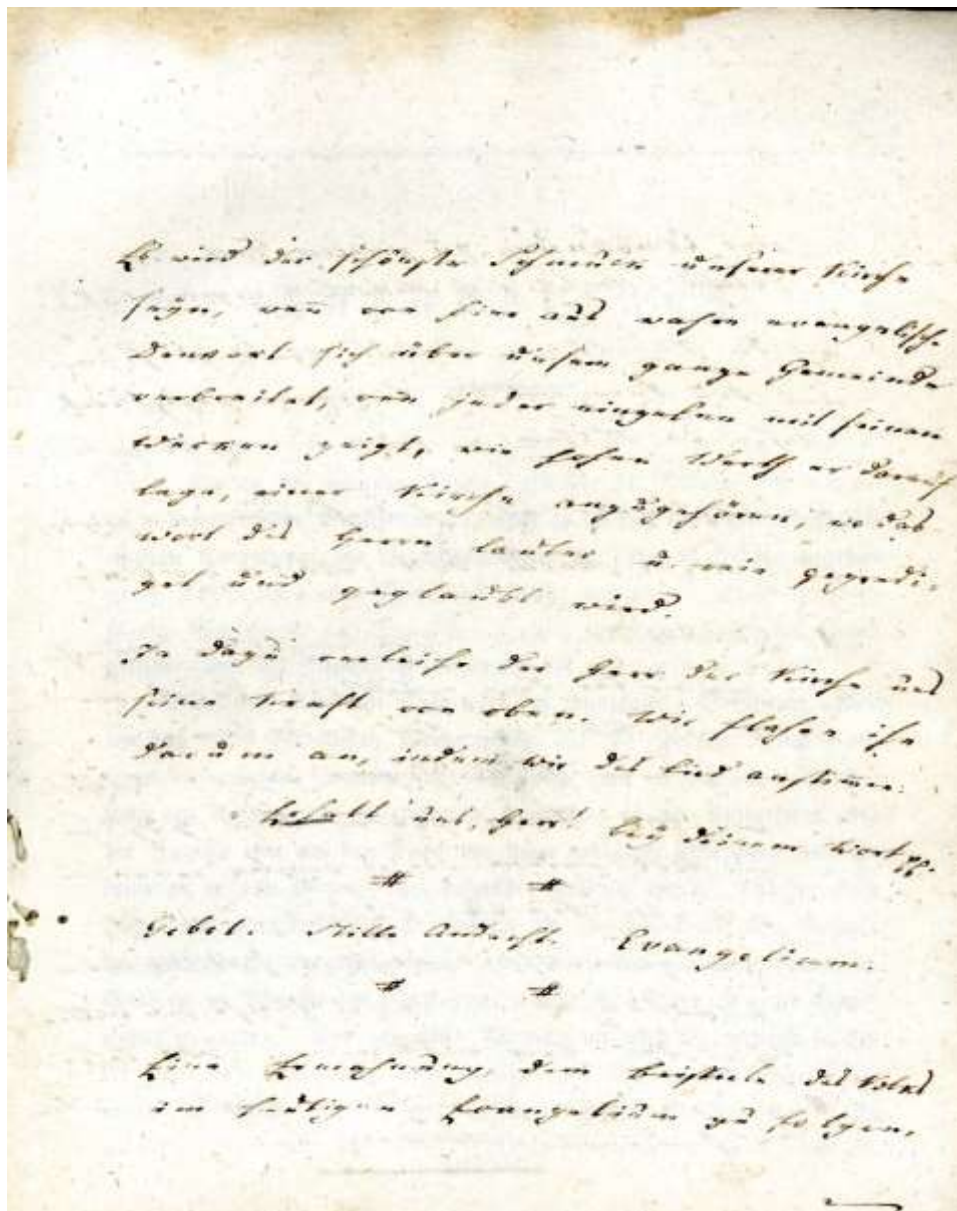 Es wird der schönste Schmuck unserer Kirche
seyn, wen der Sinn aus wahre evangelische
Denkart sich über unsere ganze Gemeinde
verbreitet, wen jeder eingelne mit seinen
Werken zeigt, wie hohen Werth er darauf
lege, einer Kirche anzugehören, wo das
Wort des Herrn lauter u. rein gepredi-
get und geglaubt wird.
Ja dazu verleihe der Herr der Kirche uns
seine Kraft von oben. Wir flehen ihn
darum an, indem wir das Lied anstimen:
Erhalt uns, Herr! bey deinem Wort pp.
# #
Gebet. Stille Andacht. Evangelium.
# #
Eine Ermahnung, dem Beispiele des Volks
im heutigen Evangelium zu folgen.